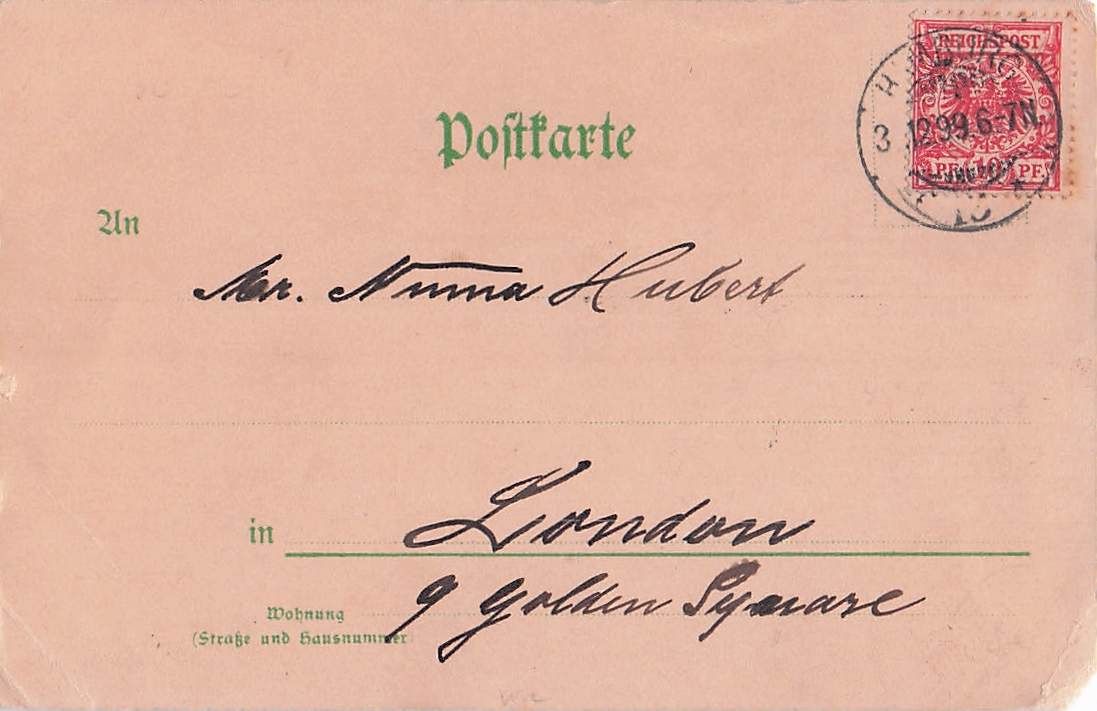 Postkarte
REICHSPOST
HAMBURG
3 12 99 6-7N.
PF. 10 PF.
An
Mr. Numa Hubert
in London
9 Golden Square
Wohnung
(Straße und Hausnummer